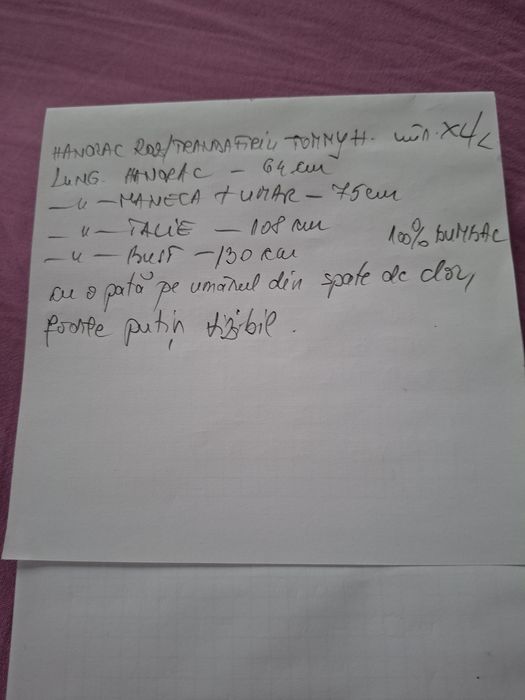 HANORAC ROZ/TRANDAFIRIU TOMMY H. măr. X4L
LUNG. HANORAC - 64 cm
-"- MANECA + UMAR - 75 cm
-"- TALIE - 108 cm
100% BUMBAC
-"- BUST - 130 cm
cu o pată pe umărul din spate de clor,
foarte puțin vizibil.